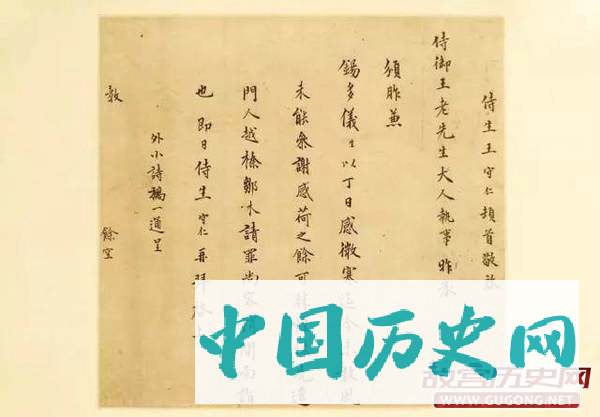 侍生王守仁頓首敬啓
侍御王老先生大人執事昨承
頒胙兼
錫多儀生以丁日感微寒迄今
未能參謝感荷之餘可勝
門人越榛鄒木請罪尚容
也即日侍生守仁再拜
外小詩稿一通呈
教
餘空
中国历史网
故宫历史网
WWW.GUGONG.NET